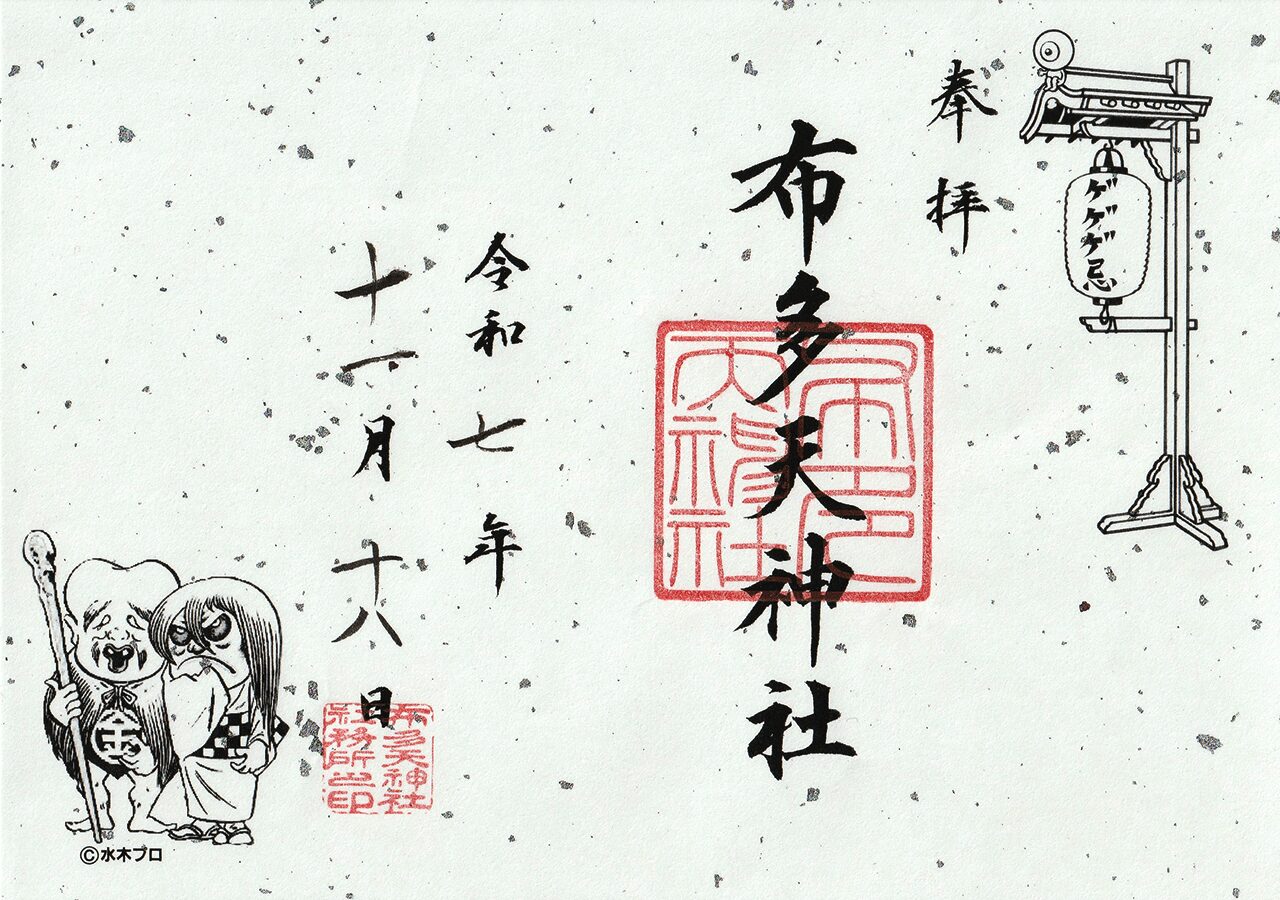 ゲゲゲ忌
奉拝
布多天神社
令和七年
十一月十八日
布多天神社
社務所之印
金
©水木プロ